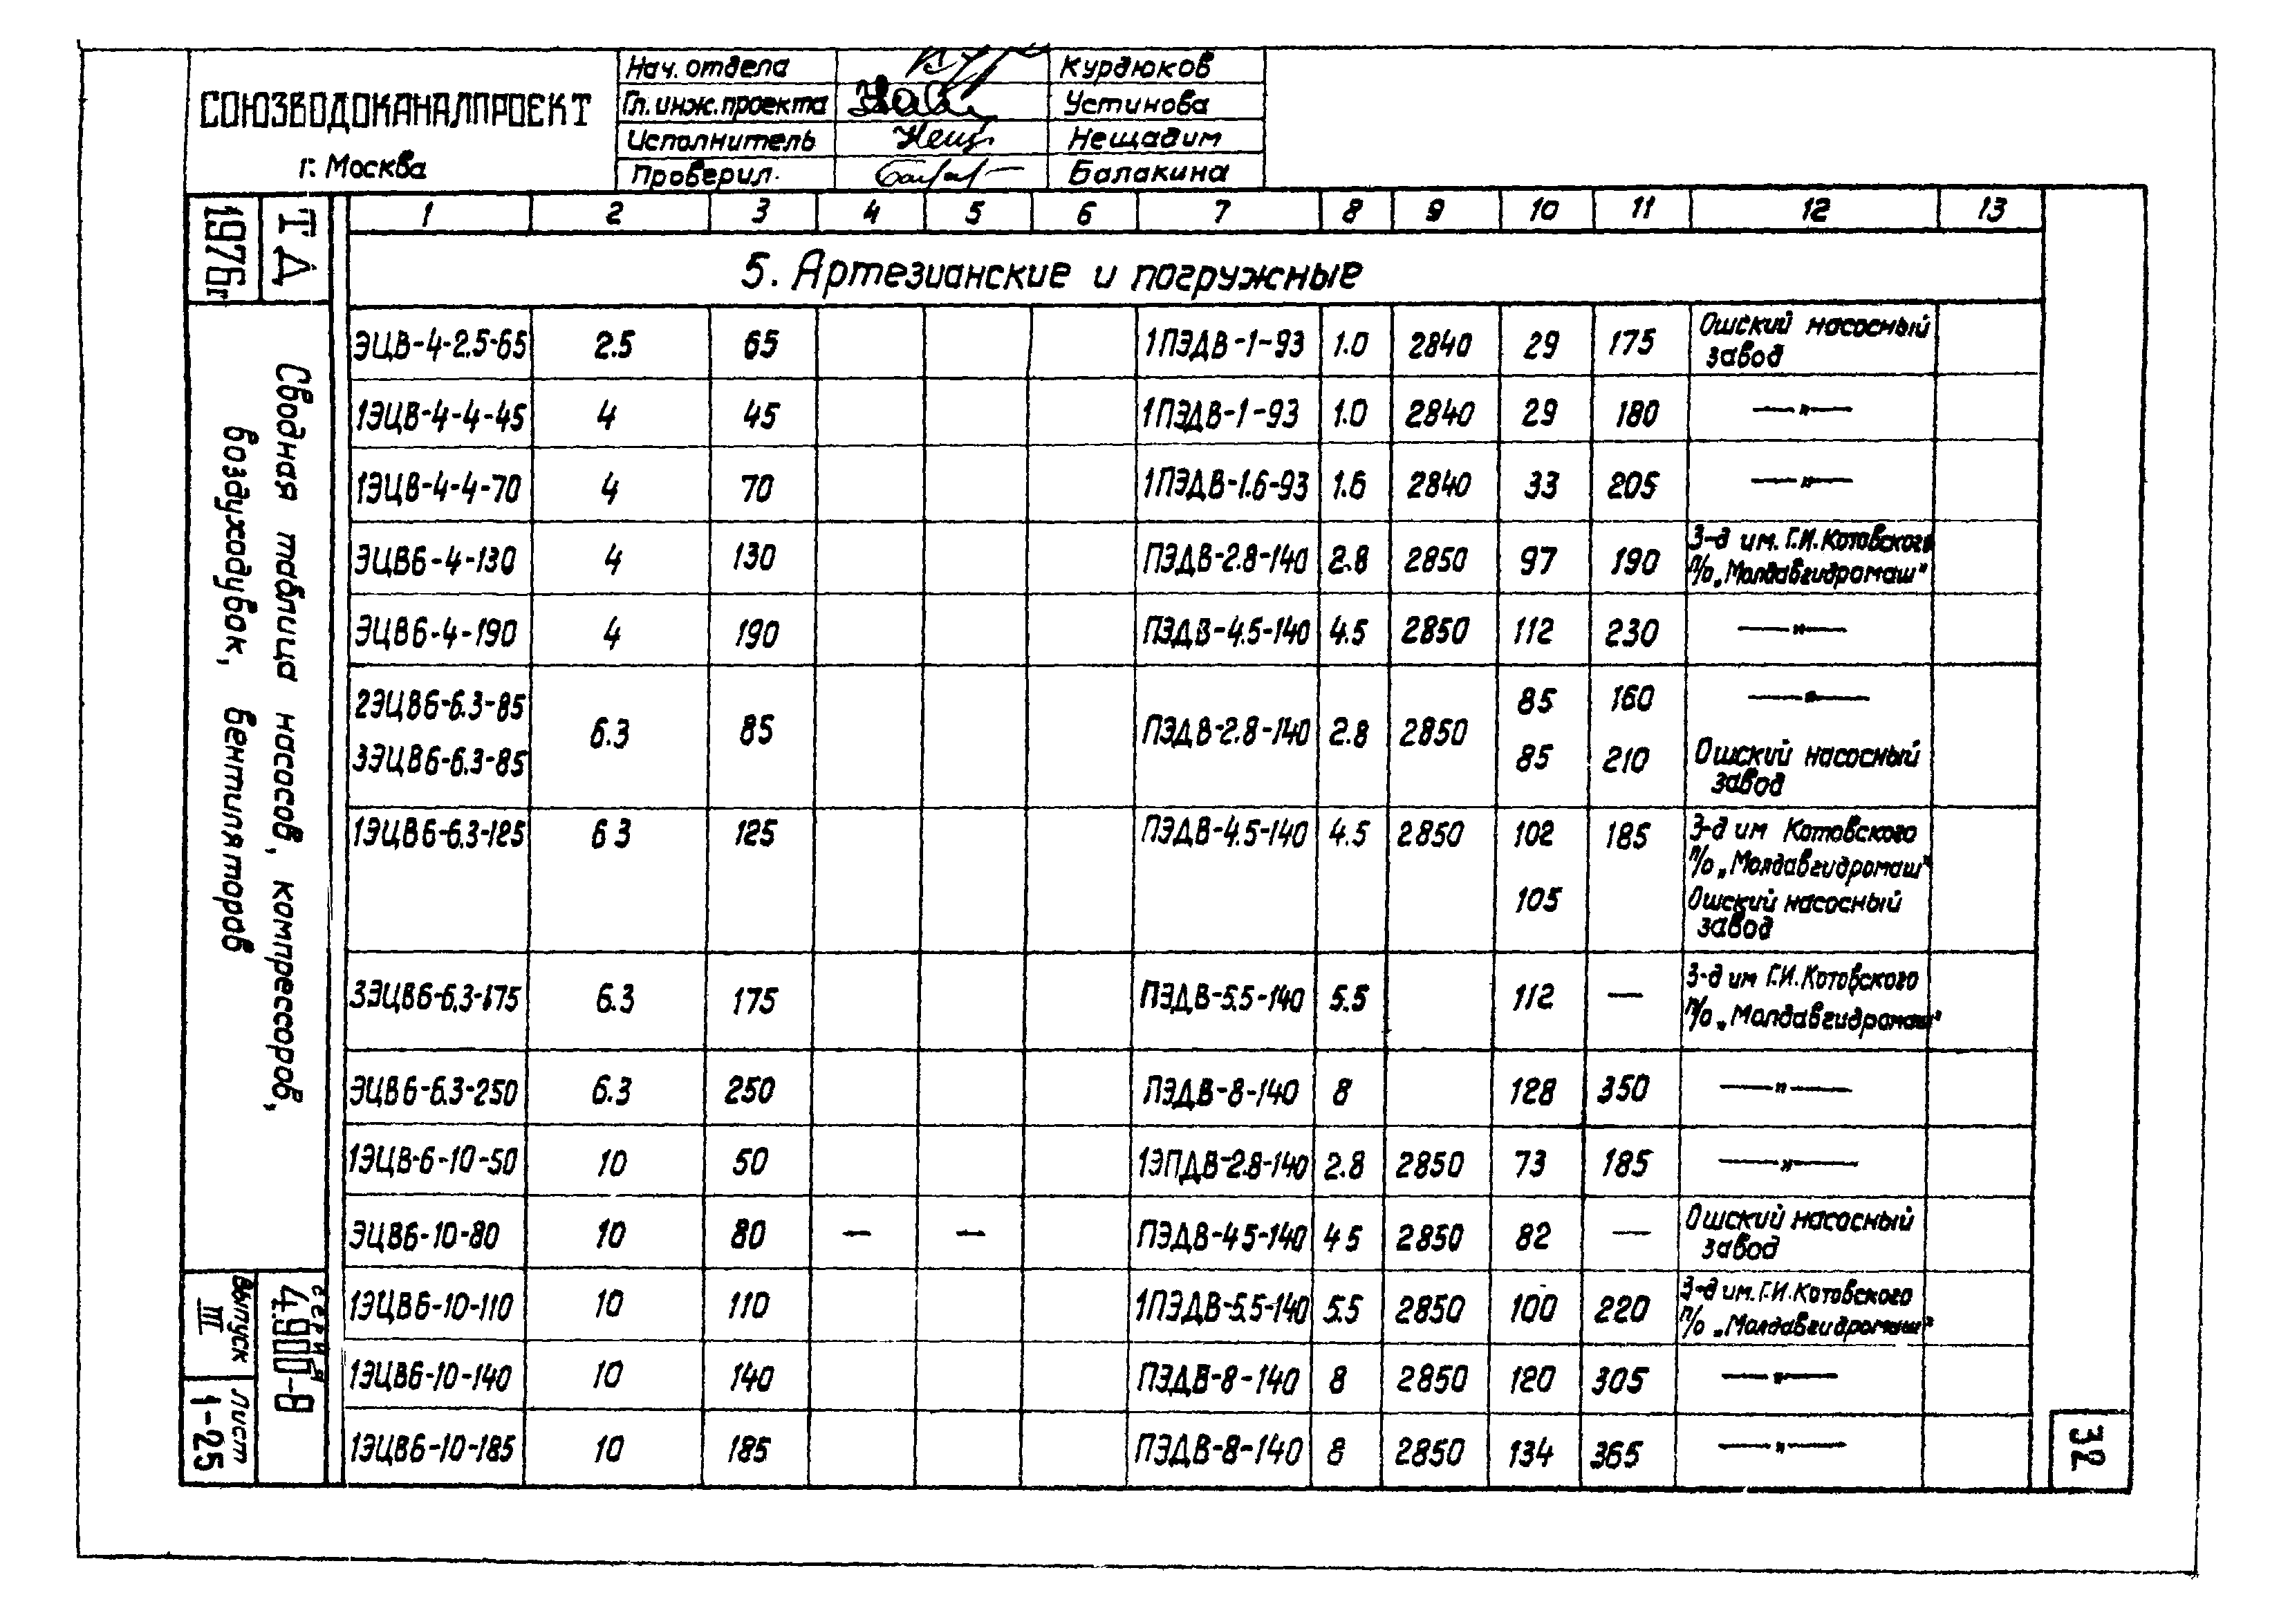 СОЮЗВОДОКАНАЛПРОЕКТ
г. Москва
Нач. отдела Курдюков
Гл. инж. проекта Устинова
Исполнитель Нещ Нещадим
Проверил. Балакина
1976г
ТД
Сводная таблица насосов, компрессоров,
воздуходувок, вентиляторов
серия
4.900-8
Выпуск
III
Лист
1-25
1 2 3 4 5 6 7 8 9 10 11 12 13
5. Артезианские и погружные
ЭЦВ-4-2.5-65 2.5 65 1ПЭДВ-1-93 1.0 2840 29 175 Ошский насосный
завод
1ЭЦВ-4-4-45 4 45 1ПЭДВ-1-93 1.0 2840 29 180 —"—
1ЭЦВ-4-4-70 4 70 1ПЭДВ-1.6-93 1.6 2840 33 205 —"—
ЭЦВ6-4-130 4 130 ПЭДВ-2.8-140 2.8 2850 97 190 З-д им. Г.И.Котовского
п/о „Молдавгидромаш"
ЭЦВ6-4-190 4 190 ПЭДВ-4.5-140 4.5 2850 112 230 —"—
2ЭЦВ6-6.3-85 6.3 85 ПЭДВ-2.8-140 2.8 2850 85 160 —"—
3ЭЦВ6-6.3-85 85 210 Ошский насосный
завод
1ЭЦВ6-6.3-125 6 3 125 ПЭДВ-4.5-140 4.5 2850 102 185 З-д им Котовского
п/о „Молдавгидромаш"
105 Ошский насосный
завод
3ЭЦВ6-6.3-175 6.3 175 ПЭДВ-5.5-140 5.5 112 — З-д им Г.И.Котовского
п/о „Молдавгидромаш"
ЭЦВ6-6.3-250 6.3 250 ПЭДВ-8-140 8 128 350 —"—
1ЭЦВ-6-10-50 10 50 1ЭПДВ-2.8-140 2.8 2850 73 185 —"—
ЭЦВ6-10-80 10 80 — — ПЭДВ-4 5-140 4 5 2850 82 — Ошский насосный
завод
1ЭЦВ6-10-110 10 110 1ПЭДВ-5.5-140 5.5 2850 100 220 З-д им. Г.И.Котовского
п/о „Молдавгидромаш"
1ЭЦВ6-10-140 10 140 ПЭДВ-8-140 8 2850 120 305 —"—
1ЭЦВ6-10-185 10 185 ПЭДВ-8-140 8 2850 134 365 —"—
32